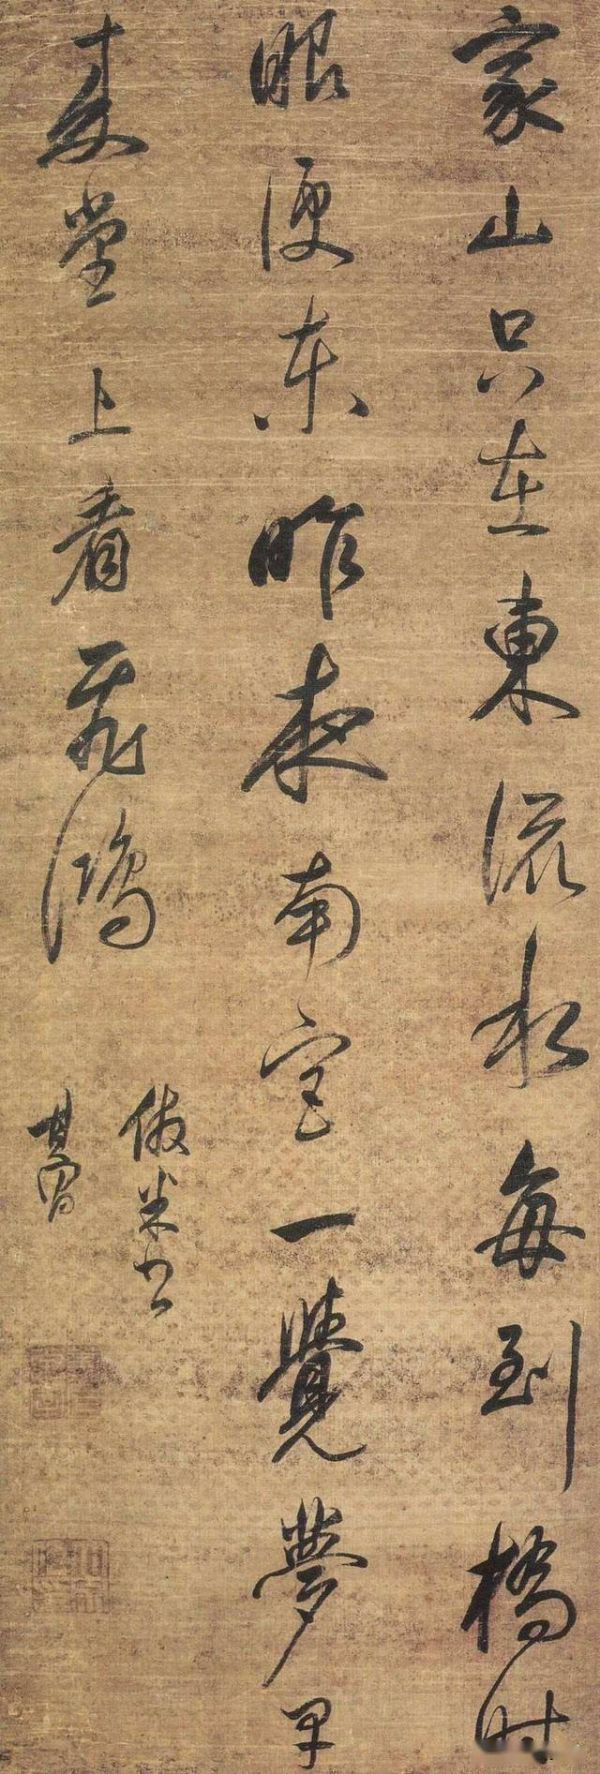 家山只在東流水每到橋時
眼便东昨夜南宮一覺夢早
來堂上看飛鴻
倣米書
其昌